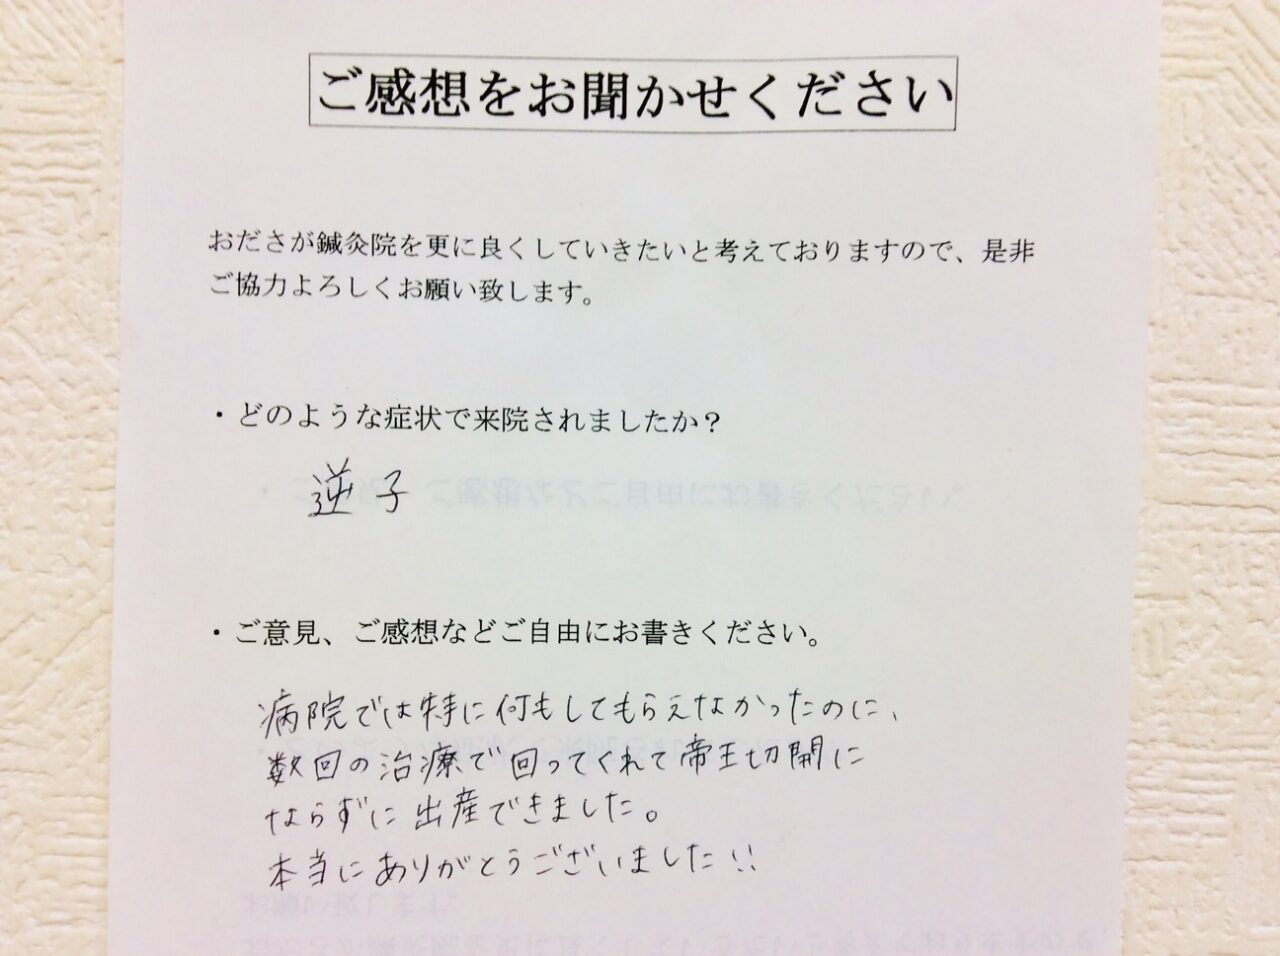 ご感想をお聞かせください
おださが鍼灸院を更に良くしていきたいと考えておりますので、是非
ご協力よろしくお願い致します。
・どのような症状で来院されましたか？
逆子
・ご意見、ご感想などご自由にお書きください。
病院では特に何もしてもらえなかったのに、
数回の治療で回ってくれて帝王切開に
ならずに出産できました。
本当にありがとうございました!!